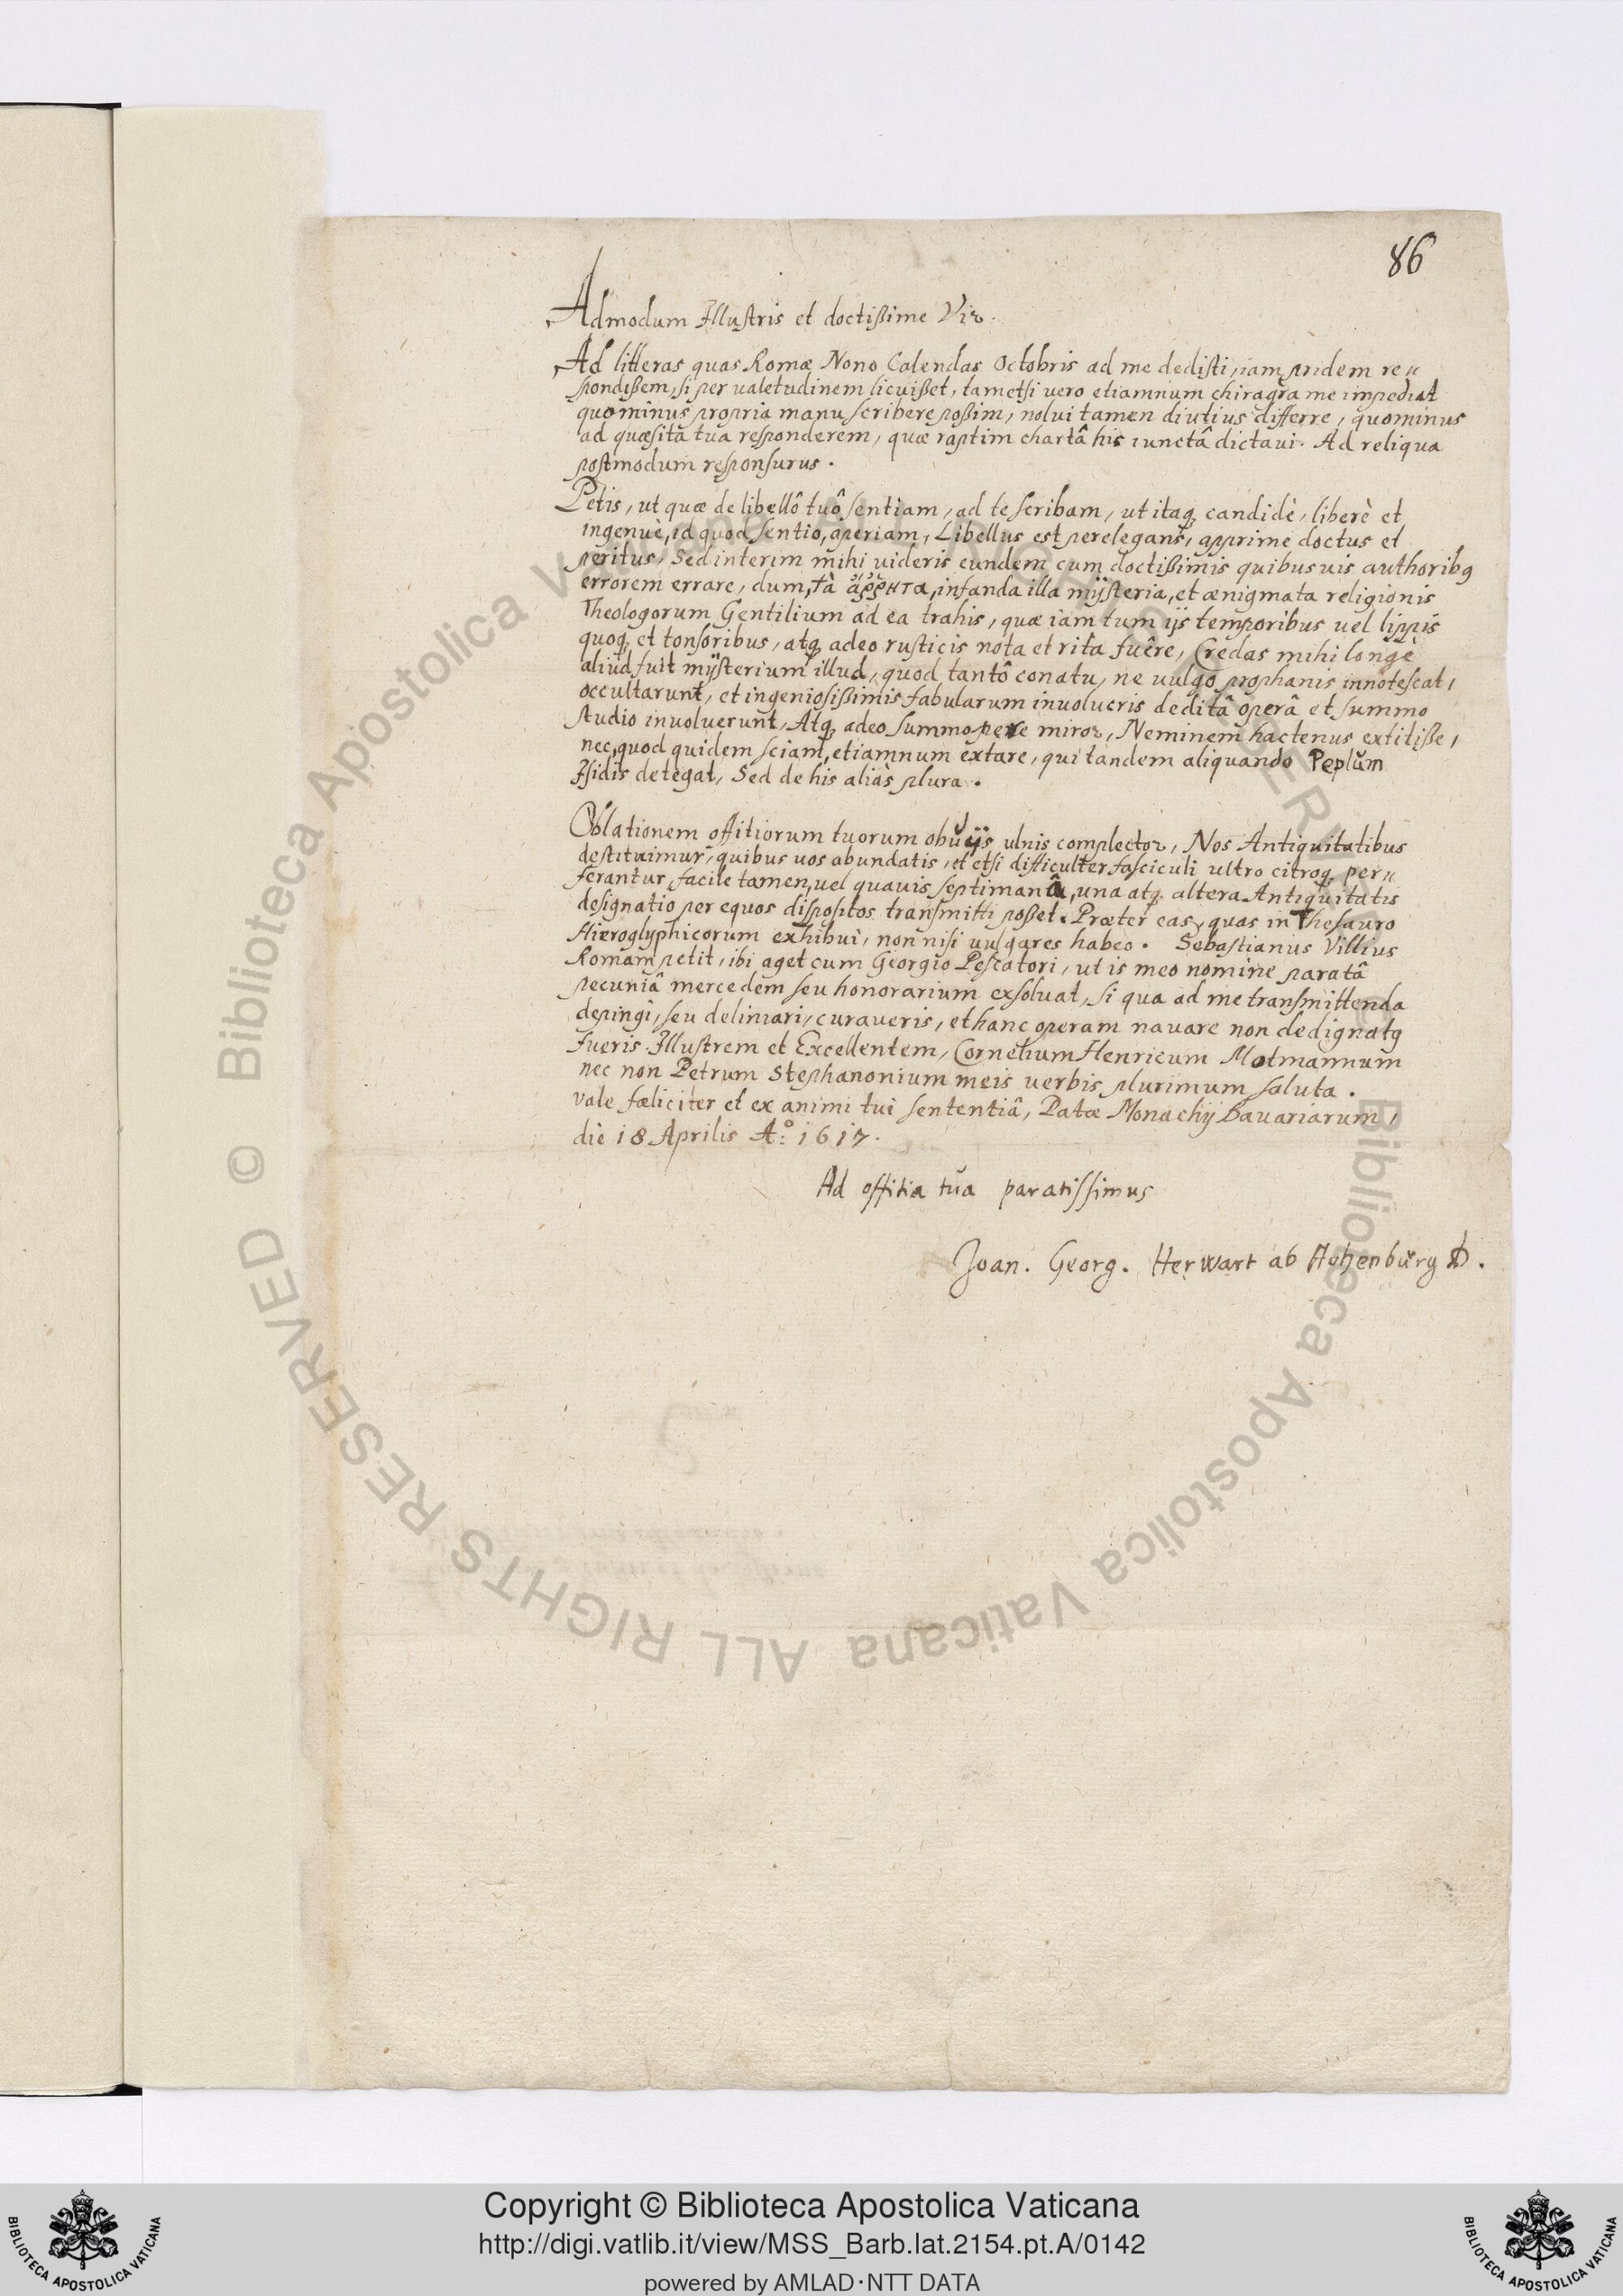 86
Admodum Illustris et doctißime Vir.
Ad litteras quas Romæ Nono Calendas Octobris ad me dedisti, iam pridem re〃
spondißem, si per ualetudinem licuißet, tametsi uero etiamnum chiragra me impediat
quominus propria manu scribere poßim, nolui tamen diutius differre, quominus
ad quæsita tua responderem, quæ raptim chartâ his iunctâ dictaui. Ad reliqua
postmodum responsurus.
Petis, ut quæ de libellô tuô sentiam, ad te scribam, ut itaq, candidè, liberè et
ingenuè, id quod sentio, aperiam, Libellus est perelegans, apprime doctus et
peritus, Sed interim mihi uideris eundem cum doctißimis quibusuis authorib9
errorem errare, dum, τὰ ἄῤῥητα, infanda illa mÿsteria, et ænigmata religionis
Theologorum Gentilium ad ea trahis, quæ iam tum ijs temporibus uel lippis
quoq, et tonsoribus, atq, adeo rusticis nota et rita fuêre, Credas mihi longè
aliud fuit mÿsterium illud, quod tantô conatu, ne uulgo prophanis innotescat,
occultarunt, et ingeniosißimis fabularum inuolucris deditâ operâ et summo
studio inuoluerunt, Atq, adeo summopere miror, Neminem hactenus extitiße,
nec, quod quidem sciam, etiamnum extare, qui tandem aliquando Peplŭm
Isidis detegat, Sed de his aliàs plura.
Oblationem offitiorum tuorum obuijs ulnis complector, Nos Antiquitatibus
destituimur, quibus uos abundatis, et etsi difficulter fasciculi ultro citroq, per〃
ferantur, facile tamen, uel quauis septimanâ, una atq, altera Antiquitatis
designatio per equos dispositos transmitti poßet. Præter eas, quas in Thesauro
Hieroglyphicorum exhibui, non nisi uulgares habeo. Sebastianus Villius
Romam petit, ibi aget cum Georgio Pescatori, ut is meo nomine paratâ
pecuniâ mercedem seu honorarium exsoluat, si qua ad me transmittenda
depingi, seu deliniari, curaueris, et hanc operam nauare non dedignat9
fueris. Illustrem et Excellentem, Cornelium Henricum Motmannum
nec non Petrum Stephanonium meis uerbis plurimum saluta.
Vale fæliciter et ex animi tui sententiâ, Datæ Monachij Bauariarum,
die 18 Aprilis Aº: 1617.
Ad offitia tŭa paratissimus
Joan. Georg. Herwart ab Hohenbŭrg D.
© Biblioteca Apostolica Vaticana ALL RIGHTS RESERVED © Biblioteca Apostolica Vaticana ALL RIGHTS RESERVED
BIBLIOTECA APOSTOLICA VATICANA
Copyright © Biblioteca Apostolica Vaticana
http://digi.vatlib.it/view/MSS_Barb.lat.2154.pt.A/0142
powered by AMLAD·NTT DATA
BIBLIOTECA APOSTOLICA VATICANA